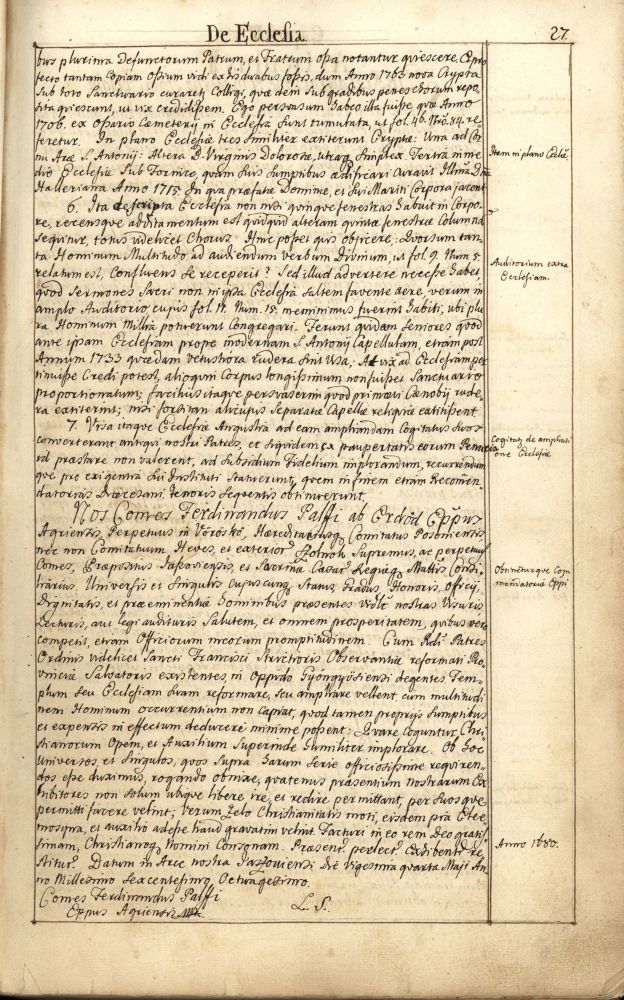 De Ecclesia
27.
bus plurima Defunctorum Patrum, et Fratrum ossa notantur quiescere, Et pro
fecto tantam Copiam Ossium vidi ex his duabus fossis, dum Anno 1763 nova Crypta
sub toto Sanctuario curaret, Colligi, quae dein sub gradibus penes chorum repo
sita quiescunt, ut vix credidissem. Ego persvasum habeo illa fuisse quae Anno
1706. ex Ossario Caemeterij in Ecclesia sunt tumulata, ut fol. 46. Nro. 84. re
feretur. In plano Ecclesiae tres similiter extiterunt Cryptae: Una ad Cor
nu Arae S. Antonij: Altera B. Virginis Dolorosae, utraq simplex. Tertia in me
dio Ecclesiae sub Fornice, quam suis sumptibus aedificari curavit Illma Dna
Halleriana Anno 1715. In qua praefatae Dominae, et sui Mariti Corpora jacent
Item in plano Eccliae.
6. Ita descripta Ecclesia non nisi quinque fenestras habuit in Corpo
re, recensque additamentum est quidquid alteram quintae fenestrae Columna
sequitur, totus videlicet Chorus. Hinc posset quis objicere: Quorsum tan
ta Hominum Multitudo ad audiendum verbum Divinum, ut fol. 9. Num. 5.
relatum est, Confluens se receperit? Sed illud advertere necesse habet,
quod Sermones Sacri non in ipsa Ecclesia saltem favente aere, verum in
amplo Auditorio, cujus fol. 17. Num. 15. meminimus fuerint habiti, ubi plu
ra Hominum Millia potuerunt Congregari. Ferunt quidam Seniores quod
ante ipsam Ecclesiam prope modernam S. Antonij Capellulam, etiam post
Annum 1733 quaedam vetustiora rudera sint visa; At vix ad Ecclesiam per
tinuisse Credi potest, alioquin Corpus longissimum non fuisset Sanctuario
proportionatum; facilius itaque persvaserim quod primaevi Caenobij rude
ra extiterint; nisi forsitan alicujus Separatae Capellae reliquiae extitissent
Auditorium extra
Ecclesiam.
7. Visa itaque Ecclesiae Angustia ad eam ampliandam Cogitatus suos
converterant antiqui nostri Patres, et siquidem ex paupertatis eorum Penuria
id praestare non valerent, ad Subsidium Fidelium implorandum, recurrendum
que pro exigentia sui Instituti Statuerunt, quem in finem etiam Recomen
datorias Dioecesani tenoris sequentis obtinuerunt.
Cogitatq de ampliati
one Ecclesiae
Nos Comes Ferdinandus Palffi ab Erdöd Eppus
Agriensis, Perpetuus in Vöröskö, Haereditariusq Comitatus Posoniensis
nec non Comitatuum Heves, et exterior Szolnok Supremus, ac perpetuus
Comes, Praepositus Jaszoviensis, et Sacrae Caesar Regiaeq Mattis Consi
liarius. Universis et Singulis cujuscunq Status, Gradus, Honoris, officij,
Dignitatis, et praeeminentiae hominibus praesentes vidlt nostras visuris
Lecturis, aut legi audituris Salutem, et omnem prosperitatem, quibus vero
competit, etiam Officiorum meorum promptitudinem. Cum Rdi Patres
Ordinis videlicet Sancti Francisci Strictioris Observantiae reformati Pro
vinciae Salvatoris existentes, in Oppido Gyöngyösiensi degentes Tem
plum seu Ecclesiam suam reformare, seu ampliare vellent, cum multitudi
nem Hominum occurrentium non capiat, quod tamen proprijs sumptibus
et expensis in effectum deducere minime possent: Quare Coguntur Chri
stianorum Opem, et Auxilium Superinde humiliter implorare. Ob hoc
Universos, et Singulos, quos supra harum serie officiosissime requiren
dos esse duximus, rogando obnixe, quatenus praesentium nostrarum Ex
hibitores non solum ubique libere ire, et redire permittant, per suosque
permitti facere velint; verum Zelo Christianitatis moti, eisdem pia Elee
mosyna, et auxilio adesse haud gravatim velint. Facturi in eo rem Deo gratis
simam, Christianoq Nomini Consonam. Praesent. perlect. Exhibenti re
stitut. Datum in Arce nostra Jaszoviensi Die Vigesima quarta Maji An
no Millesimo Sexcentesimo Octuagesimo.
Obtinentque Com
mendatorias Eppi
Anno 1680.
Comes Ferdinandus Palffi
Eppus Agriensis
L. S.